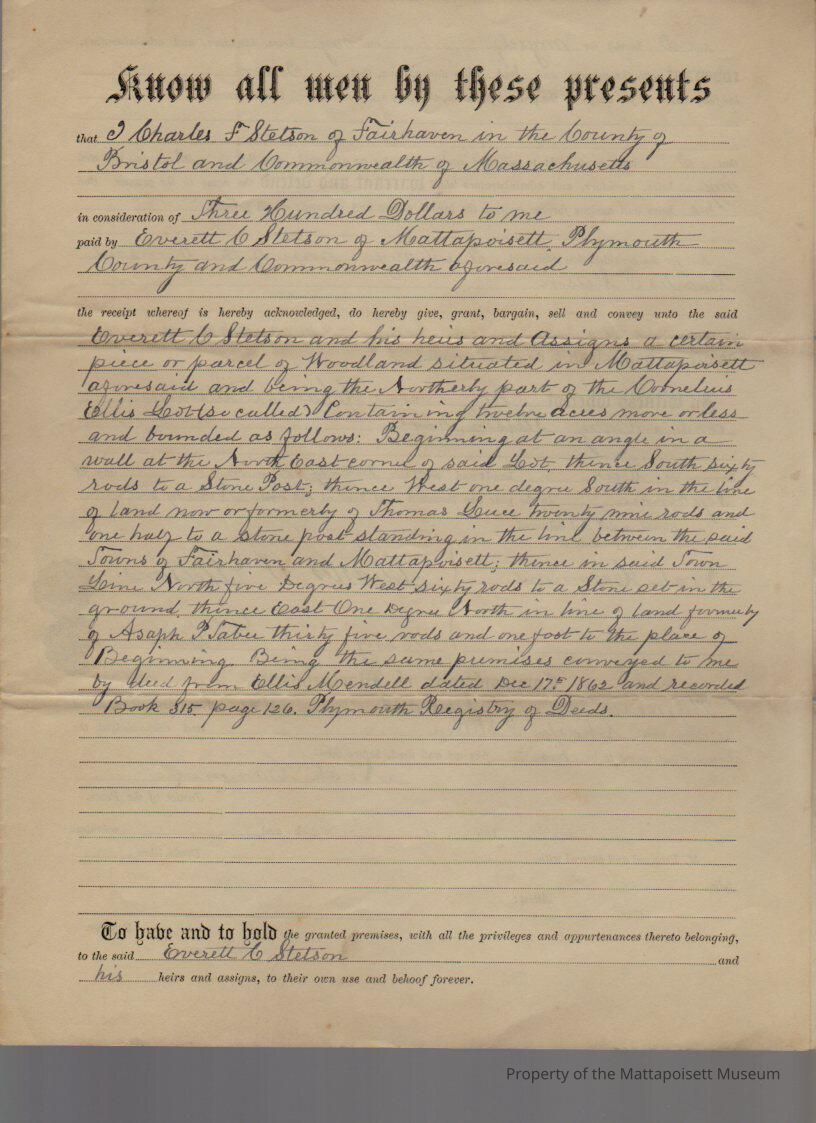 Know all men by these presents
that I Charles F Stetson of Fairhaven in the County of
Bristol and Commonwealth of Massachusetts
in consideration of Three Hundred Dollars to me
paid by Everett C Stetson of Mattapoisett Plymouth
County and Commonwealth aforesaid
the receipt whereof is hereby acknowledged, do hereby give, grant, bargain, sell and convey unto the said
Everett C Stetson and his heirs and Assigns a certain
piece or parcel of Woodland situated in Mattapoisett
aforesaid and being the Northerly part of the Cornelius
Ellis Lot (so called) Containing twelve acres more or less
and bounded as follows: Beginning at an angle in a
wall at the North East corner of said Lot, thence South sixty
rods to a Stone Post; thence West one degree South in the line
of land now or formerly of Thomas Luce twenty nine rods and
one half to a stone post standing in the line between the said
Towns of Fairhaven and Mattapoisett; thence in said Town
Line North five Degrees West sixty rods to a Stone set in the
ground, thence East One Degree North in line of land formerly
of Asaph P Taber thirty five rods and one foot to the place of
Beginning. Being the same premises conveyed to me
by deed from Ellis Mendell dated Dec 17th 1862 and recorded
Book 315 page 126. Plymouth Registry of Deeds.
To have and to hold the granted premises, with all the privileges and appurtenances thereto belonging,
to the said Everett C Stetson and
his heirs and assigns, to their own use and behoof forever.
Property of the Mattapoisett Museum